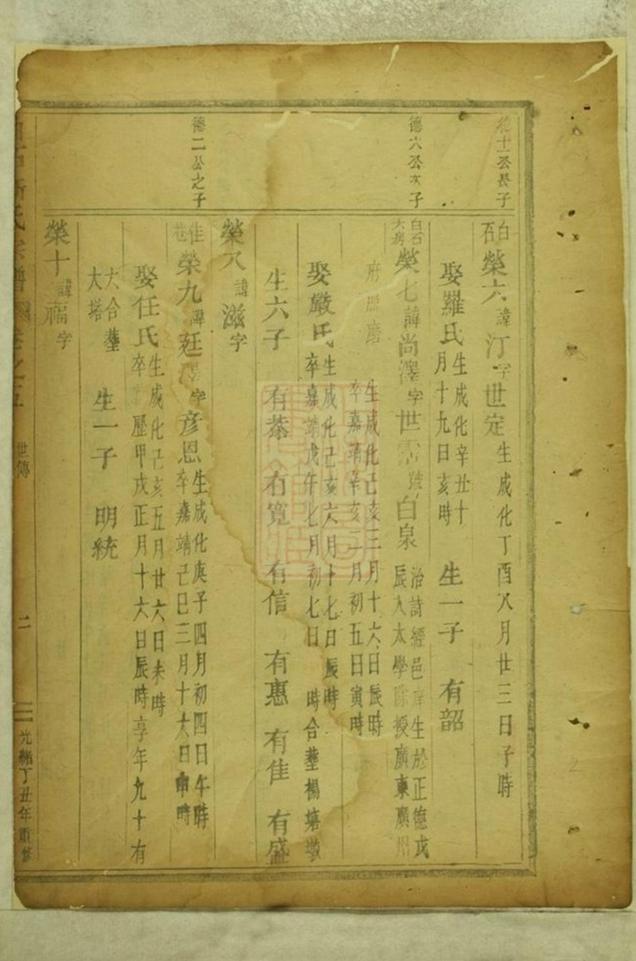 德十一公長子
白石 榮六 諱 汀 字 世定 生成化丁酉八月廿三日子時
娶羅氏 生成化辛丑十月十九日亥時 生一子 有韶
德六公次子
白石大房 榮七 諱 尚澤 字 世霑 號 白泉 治詩經邑庠生於正德戊辰入太學除授廣東廣州
府照磨 生成化己亥三月十六日辰時 卒嘉靖辛亥二月初五日寅時
娶嚴氏 生成化己亥六月十七日辰時 卒嘉靖戊午七月初七日 時合葬楊塘墩
生六子 有恭 有寬 有信 有惠 有佳 有盛
榮八 諱 滋 字
德二公之子
榮九 諱 廷 字 彥恩 生成化庚子四月初四日午時 卒嘉靖己巳三月十六日申時
娶任氏 生成化己亥五月廿六日未時 卒 歷甲戌正月十六日辰時享年九十有
大合葬大塔 生一子 明統
榮十 諱 福 字
氏宗譜 卷之五 世傳 二 光緒丁丑年重修